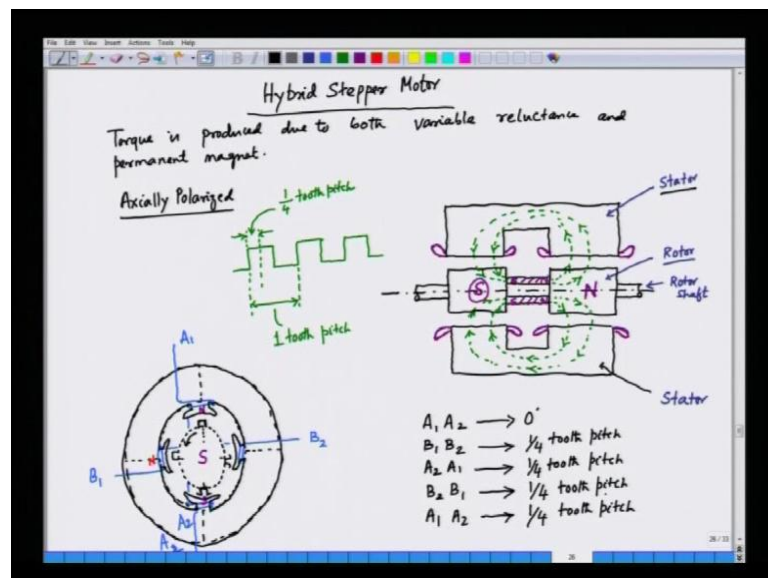 File Edit View Insert Actions Tools Help
B I
Hybrid Stepper Motor
Torque is produced due to both variable reluctance and
permanent magnet.
Axially Polarized
1/4 tooth pitch
1 tooth pitch
Stator
Rotor
Rotor
shaft
S
N
Stator
A1
B2
N
S
N
B1
A2
A2
A1 A2 → 0°
B1 B2 → 1/4 tooth pitch
A2 A1 → 1/4 tooth pitch
B2 B1 → 1/4 tooth pitch
A1 A2 → 1/4 tooth pitch
26/33
26